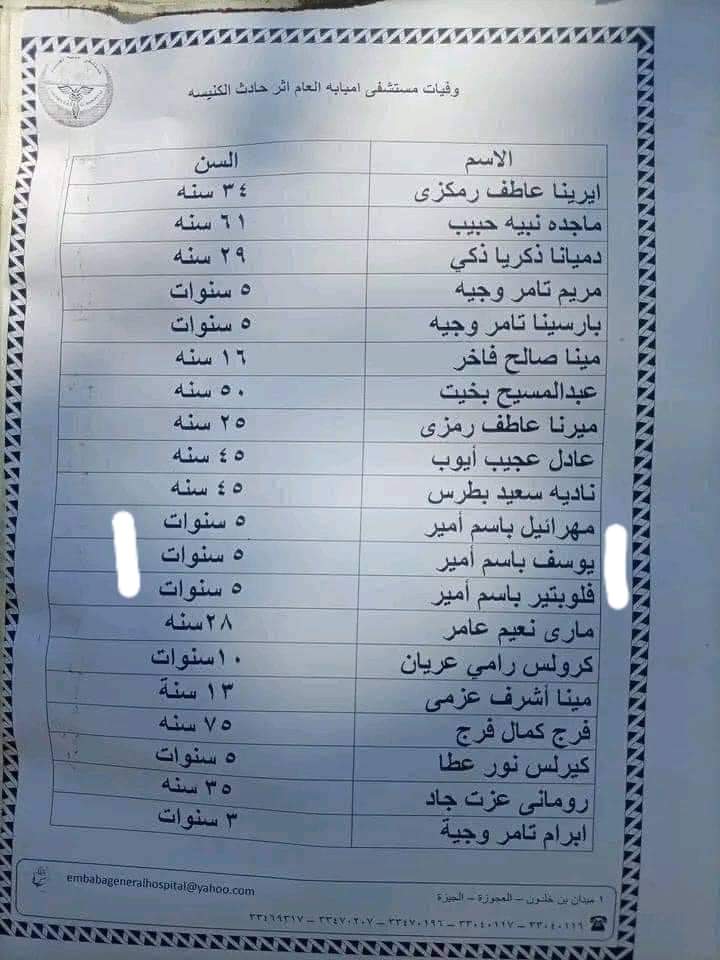 وفيات مستشفى امبابه العام اثر حادث الكنيسه
الاسم السن
ايرينا عاطف رمكزى ٣٤ سنه
ماجده نبيه حبيب ٦١ سنه
دميانا ذكريا ذكي ٢٩ سنه
مريم تامر وجيه ٥ سنوات
بارسينا تامر وجيه ٥ سنوات
مينا صالح فاخر ١٦ سنه
عبدالمسيح بخيت ٥٠ سنه
ميرنا عاطف رمزى ٢٥ سنه
عادل عجيب أيوب ٤٥ سنه
ناديه سعيد بطرس ٤٥ سنه
مهرائيل باسم أمير ٥ سنوات
يوسف باسم أمير ٥ سنوات
فلوبتير باسم أمير ٥ سنوات
مارى نعيم عامر ٢٨سنه
كرولس رامي عريان ١٠سنوات
مينا أشرف عزمى ١٣ سنة
فرج كمال فرج ٧٥ سنه
كيرلس نور عطا ٥ سنوات
رومانى عزت جاد ٣٥ سنه
ابرام تامر وجية ٣ سنوات
١ ميدان بن خلدون – العجوزة – الجيزة
embabageneralhospital@yahoo.com
٣٣٠٤٠١١٦ – ٣٣٠٤٠١١٧ – ٣٣٤٧٠١٩٦ – ٣٣٤٧٠٢٠٧ – ٣٣٤٦٩٣١٧